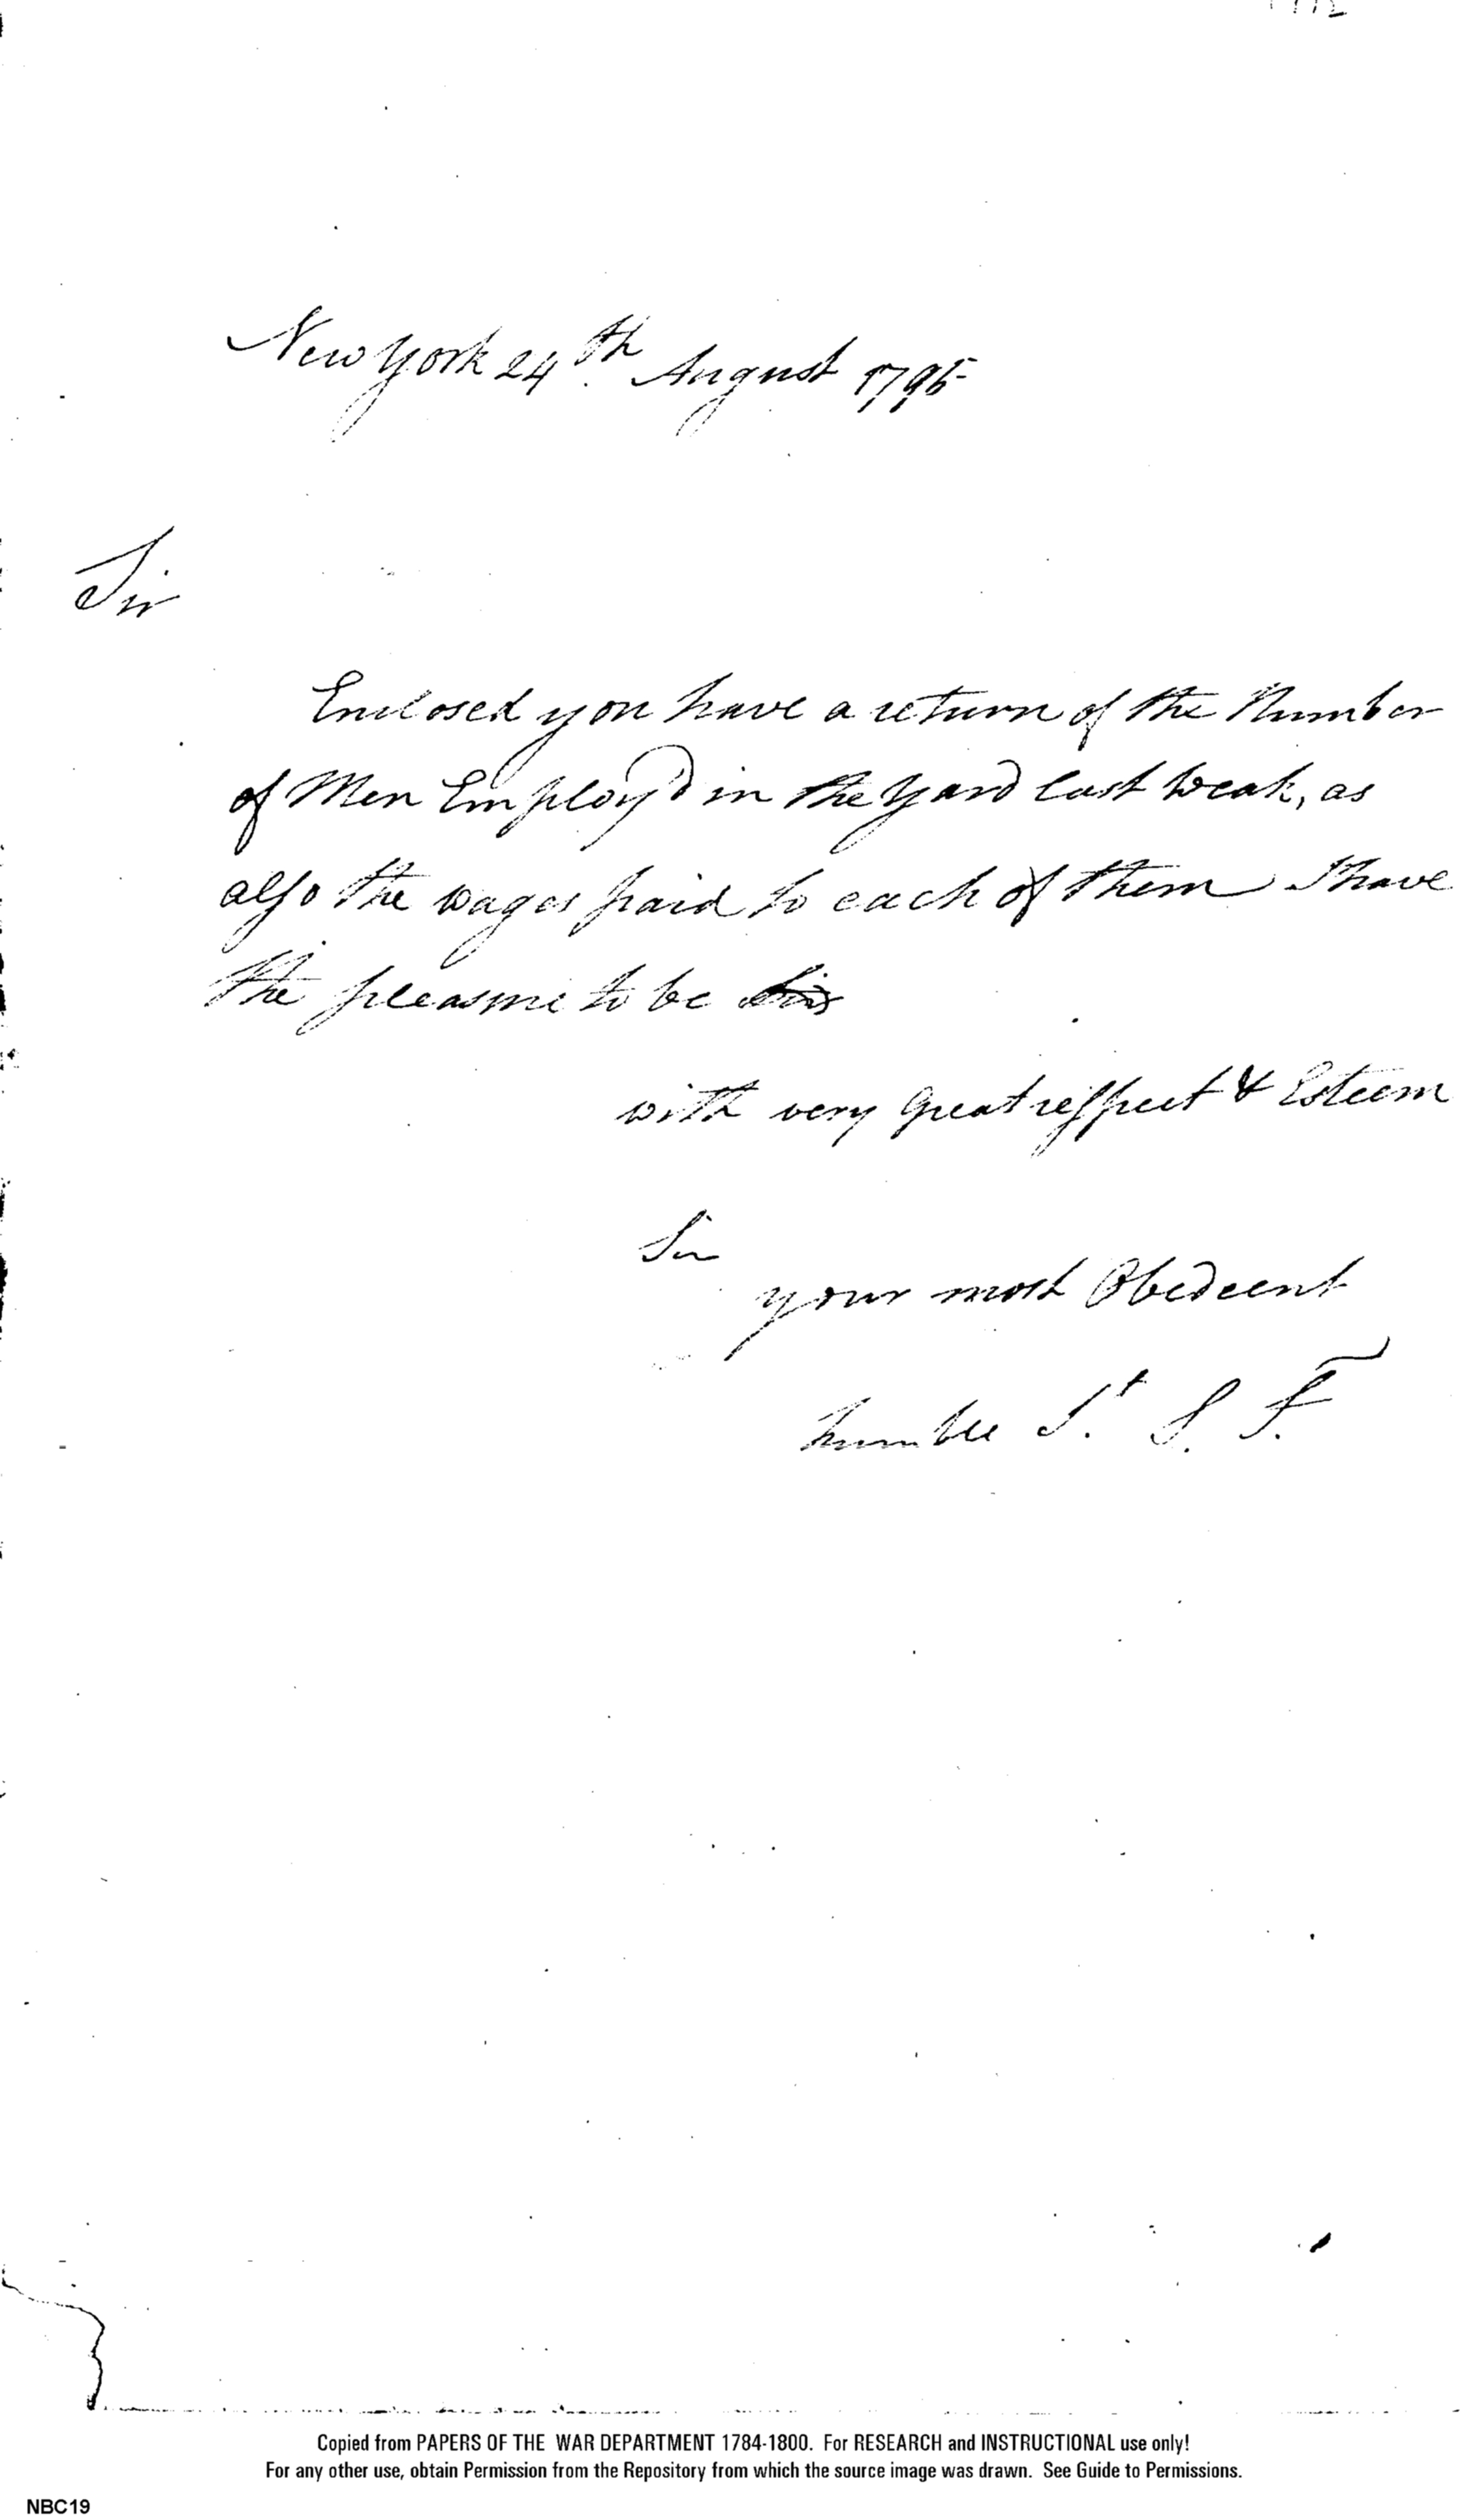 New York 24th August 1795
Sir
Enclosed you have a return of the Number
of Men Employ'd in the Yard last Weak, as
also the wages paid to each of them I have
the pleasure to be
with very Great respect & Esteem
Sir
your most Obedeent
humble St. S. F.
Copied from PAPERS OF THE WAR DEPARTMENT 1784-1800. For RESEARCH and INSTRUCTIONAL use only!
For any other use, obtain Permission from the Repository from which the source image was drawn. See Guide to Permissions.
NBC19